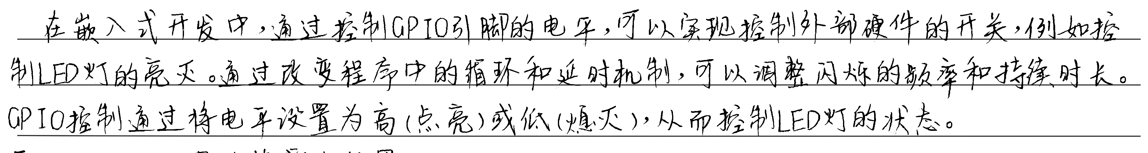 在嵌入式开发中,通过控制GPIO引脚的电平,可以实现控制外部硬件的开关,例如控
制LED灯的亮灭。通过改变程序中的循环和延时机制,可以调整闪烁的频率和持续时长。
GPIO控制通过将电平设置为高(点亮)或低(熄灭),从而控制LED灯的状态。